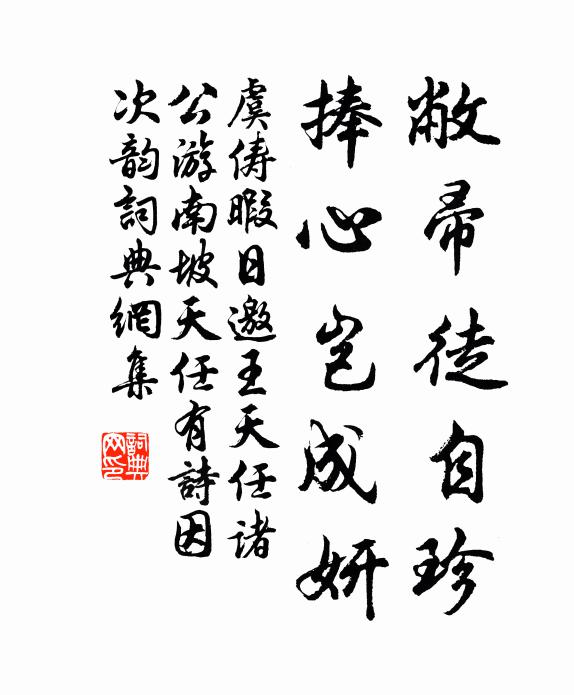 敝帚徒自珍
捧心岂成妍
虞俦暇日邀王天任诸
公游南坡天任有詩因
次韵詞典網集
詞典網印